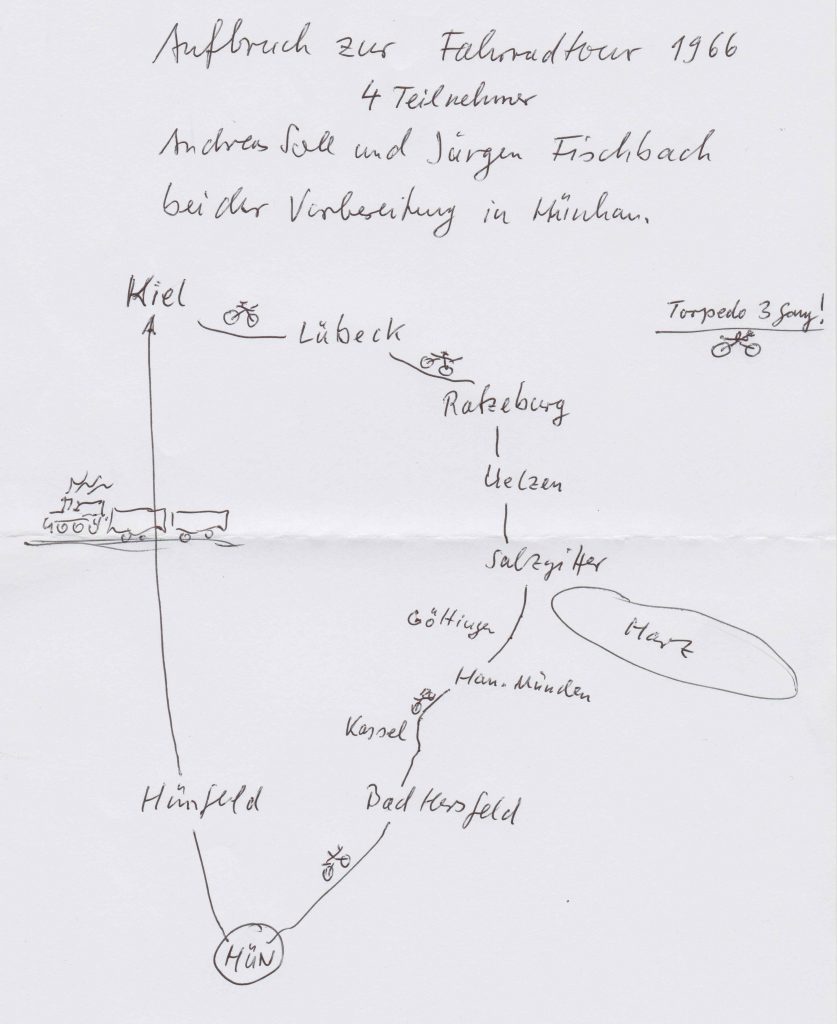 Aufbruch zur Fahrradtour 1966
4 Teilnehmer
Andreas Sell und Jürgen Fischbach
bei der Vorbereitung in Münhan.
Kiel
Lübeck
Torpedo 3 Gang!
Ratzeburg
Uelzen
Salzgitter
Göttingen
Harz
Han. Münden
Kassel
Hünfeld
Bad Hersfeld
MÜN